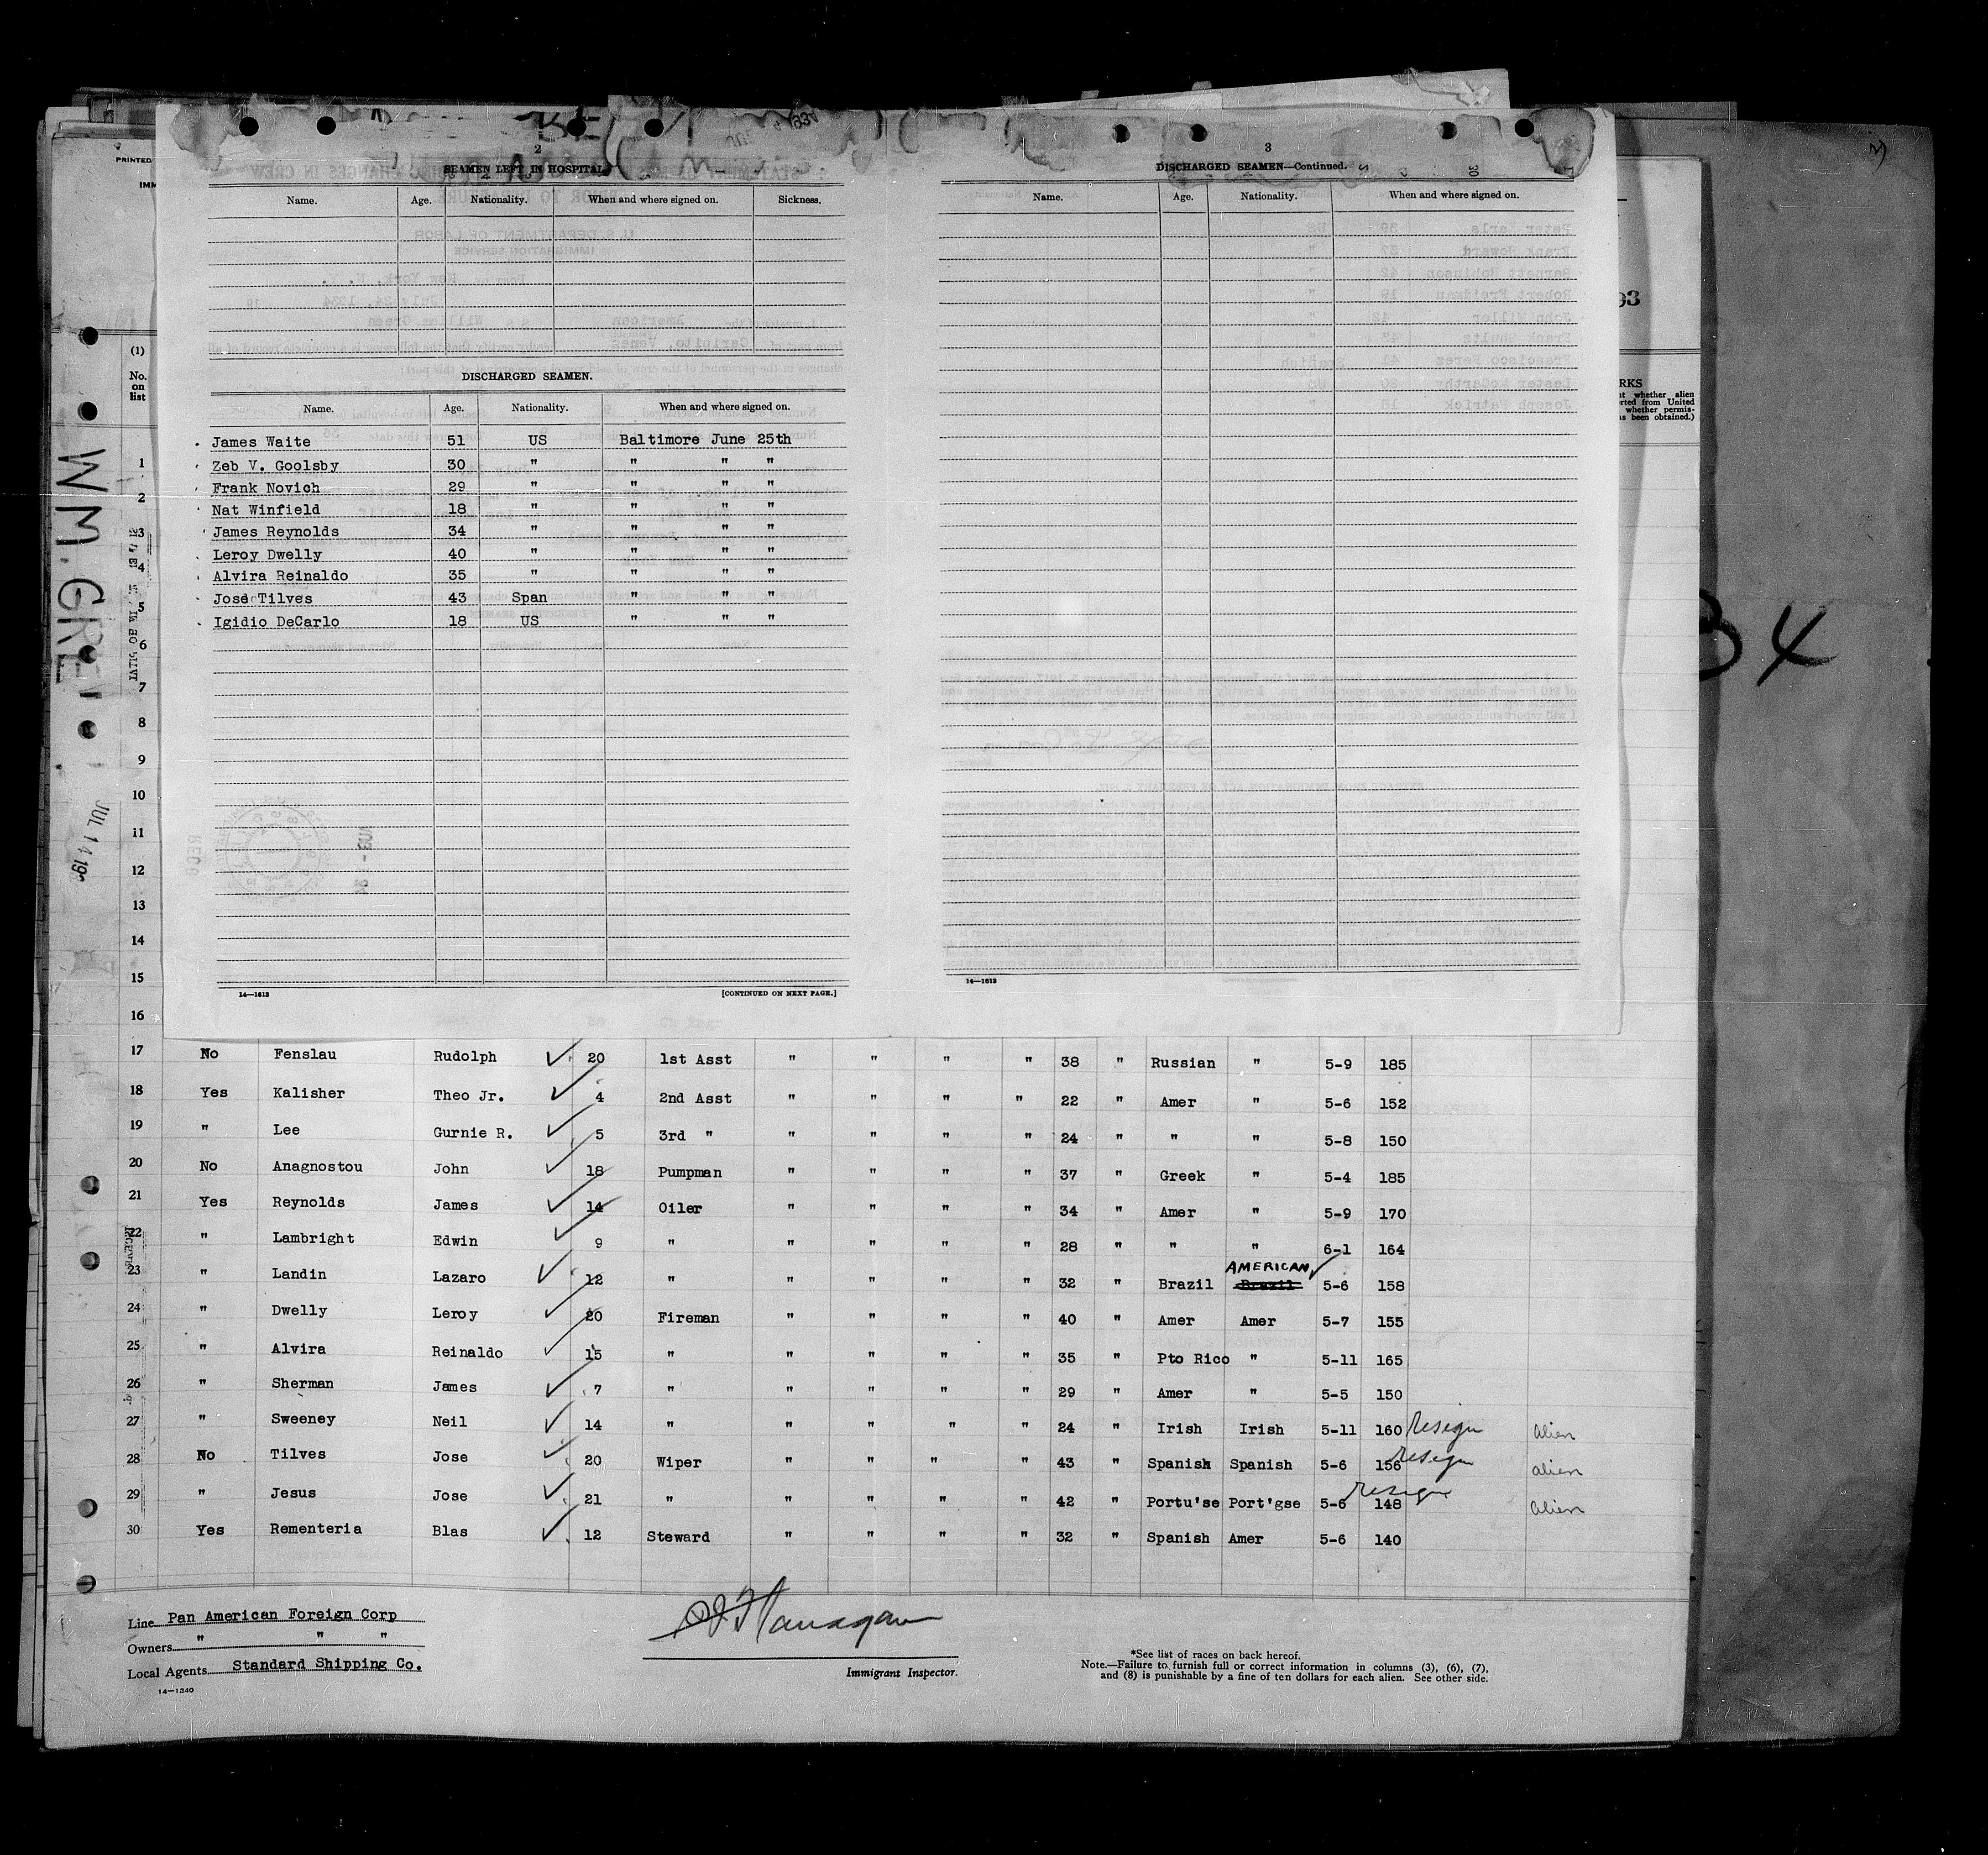 PRINTED
IMM
2
SEAMEN LEFT IN HOSPITAL
Name. Age. Nationality. When and where signed on. Sickness.
DISCHARGED SEAMEN.
Name. Age. Nationality. When and where signed on.
James Waite 51 US Baltimore June 25th
Zeb V. Goolsby 30 " " " "
Frank Novich 29 " " " "
Nat Winfield 18 " " " "
James Reynolds 34 " " " "
Leroy Dwelly 40 " " " "
Alvira Reinaldo 35 " " " "
Jose Tilves 43 Span " " "
Igidio DeCarlo 18 US " " "
14—1613 [CONTINUED ON NEXT PAGE.]
3
DISCHARGED SEAMEN—Continued.
Name. Age. Nationality. When and where signed on.
14—1613
93
RKS
whether alien
rted from United
whether permis-
s been obtained.)
34
WM. GREE
JUL 14 19
(1)
No.
on
list
1
2
3
4
5
6
7
8
9
10
11
12
13
14
15
16
17 No Fenslau Rudolph 20 1st Asst " " " " 38 " Russian " 5-9 185
18 Yes Kalisher Theo Jr. 4 2nd Asst " " " " 22 " Amer " 5-6 152
19 " Lee Gurnie R. 5 3rd " " " " " 24 " " " 5-8 150
20 No Anagnostou John 18 Pumpman " " " " 37 " Greek " 5-4 185
21 Yes Reynolds James 14 Oiler " " " " 34 " Amer " 5-9 170
22 " Lambright Edwin 9 " " " " " 28 " " " 6-1 164
AMERICAN
23 " Landin Lazaro 12 " " " " " 32 " Brazil Brazil 5-6 158
24 " Dwelly Leroy 20 Fireman " " " " 40 " Amer Amer 5-7 155
25 " Alvira Reinaldo 15 " " " " " 35 " Pto Rico " 5-11 165
26 " Sherman James 7 " " " " " 29 " Amer " 5-5 150
27 " Sweeney Neil 14 " " " " " 24 " Irish Irish 5-11 160 Resign alien
28 No Tilves Jose 20 Wiper " " " " 43 " Spanish Spanish 5-6 156 resign alien
29 " Jesus Jose 21 " " " " " 42 " Portu'se Port'gse 5-6 148 resign alien
30 Yes Rementeria Blas 12 Steward " " " " 32 " Spanish Amer 5-6 140
Line Pan American Foreign Corp
Owners " " "
Local Agents Standard Shipping Co.
14—1240
Flanagan
Immigrant Inspector.
*See list of races on back hereof.
Note.—Failure to furnish full or correct information in columns (3), (6), (7),
and (8) is punishable by a fine of ten dollars for each alien. See other side.